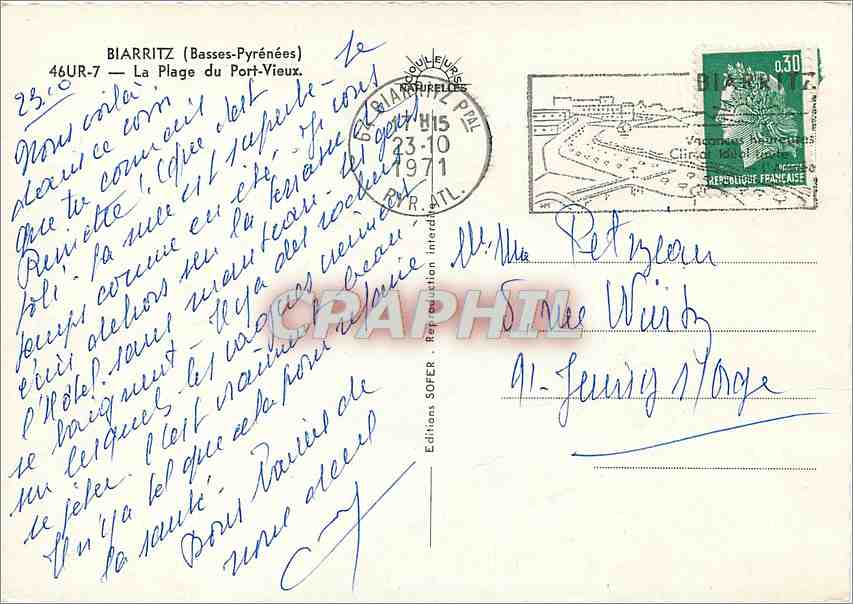 BIARRITZ (Basses-Pyrénées)
46UR-7 — La Plage du Port-Vieux.
COULEURS
NATURELLES
64 BIARRITZ PPAL
17 H15
23-10
1971
PYR. ATL.
BIARRITZ
Vacances heureuses
Climat idéal
0,30
POSTES
REPUBLIQUE FRANÇAISE
23.10
Nous voilà
dans ce coin
que tu connais
Reinette! (que c'est
joli. La mer est superbe. Le
temps comme en été. Je vous
écris dehors sur la terrasse de
l'Hôtel sans manteau. Les gens
se baignent. Il y a des rochers
sur lesquels les vagues viennent
se jeter. C'est vraiment beau.
Il n'y a tel que cela pour refaire
la santé. Bons baisers de
nous deux
Mr. Mme Petizeau
5 rue Würtz
91 - Juvisy s/Orge
Editions SOFER - Reproduction interdite
CPAPHIL